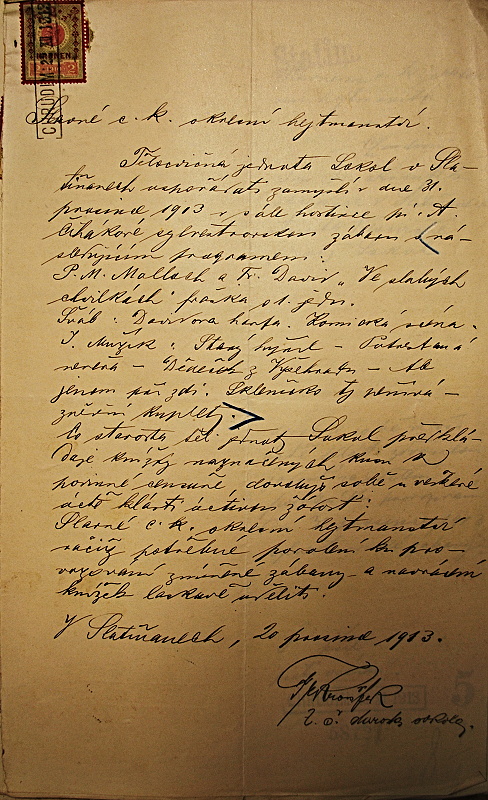 Slavné c. k. okresní hejtmanství.
Tělocvičná jednota Sokol v Sla-
tiňanech uspořádati zamýšlí v dne 31.
prosince 1913 v sále hostince pí. A.
Čihákové sylvestrovskou zábavu s ná-
sledujícím programem:
P. M. Mallach a F. David „Ve slabých
chvilkách fraška o 1. jedn.
Šváb: Davidova harfa. Komická scéna.
J. Mužík: Starý hýřil – Potrestaná
nevěra – Dědeček z Vyšehradu – Ale
jenom pár dní. Sklenčko ty
kuplety.
Co starosta těl. jednoty Sokol předklá-
daje knížky naznačených kusů k
povinné censuře, dovoluje sobě v veškeré
úctě klásti uctivou žádost:
Slavné c. k. okresní hejtmanství
račiž potřebné povolení ku pro-
vozování zmíněné zábavy a navrácení
knížek laskavě uděliti.
V Slatiňanech, 20 prosince 1913.
t. č. starosta sokola.